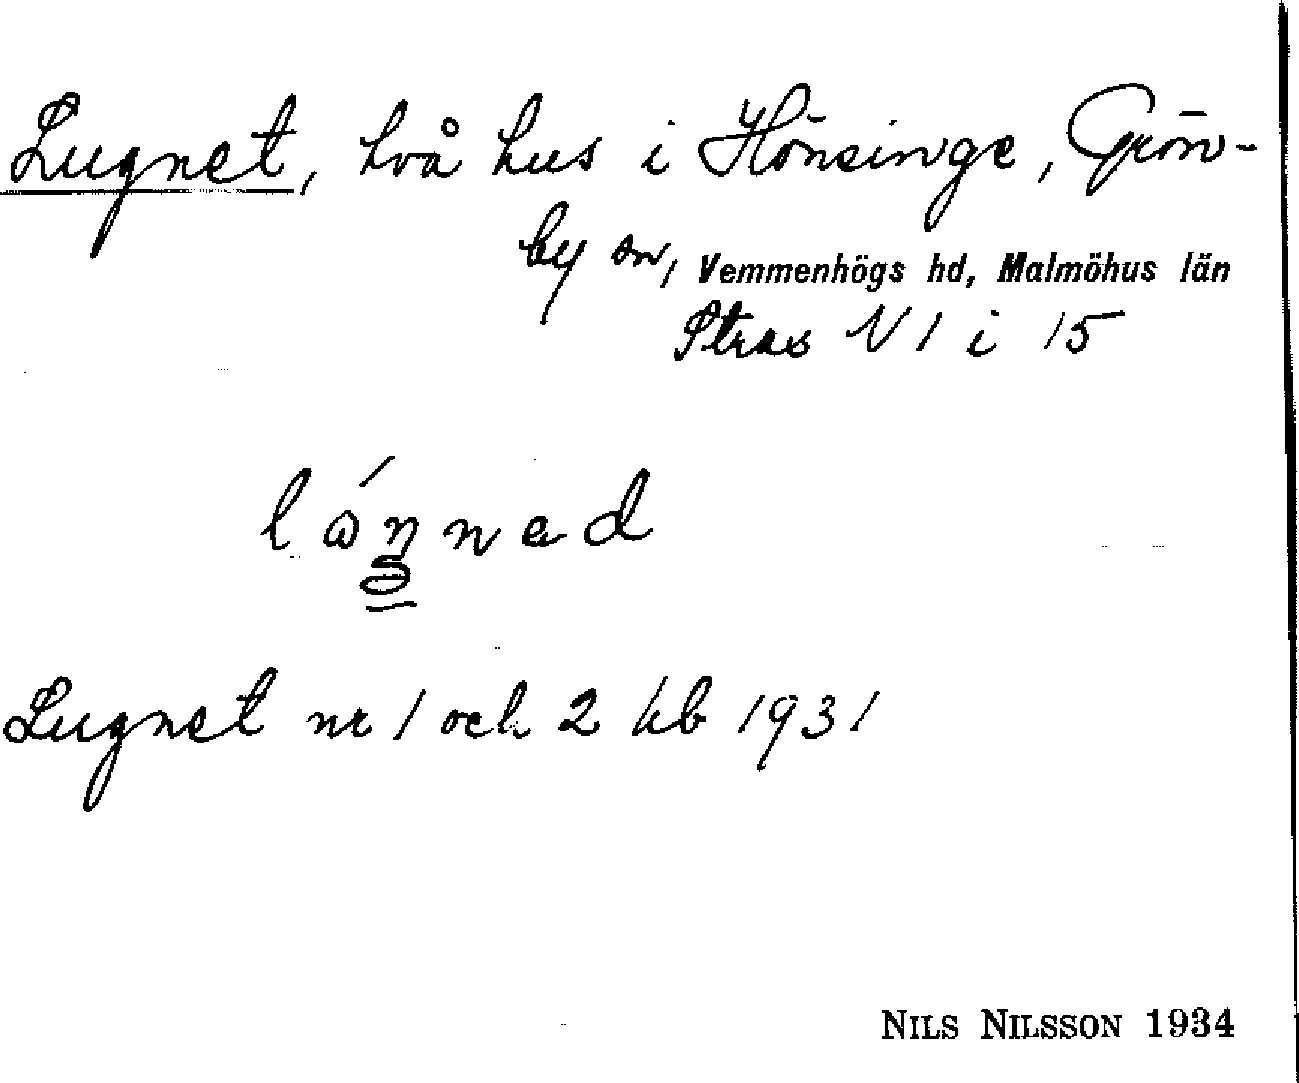 Lugnet, två hus i Hönsinge, Grön-
by sn, Vemmenhögs hd, Malmöhus län
Strax N 1 i 15
lώŋnad
Lugnet nr 1 och 2 kb 1931
NILS NILSSON 1934